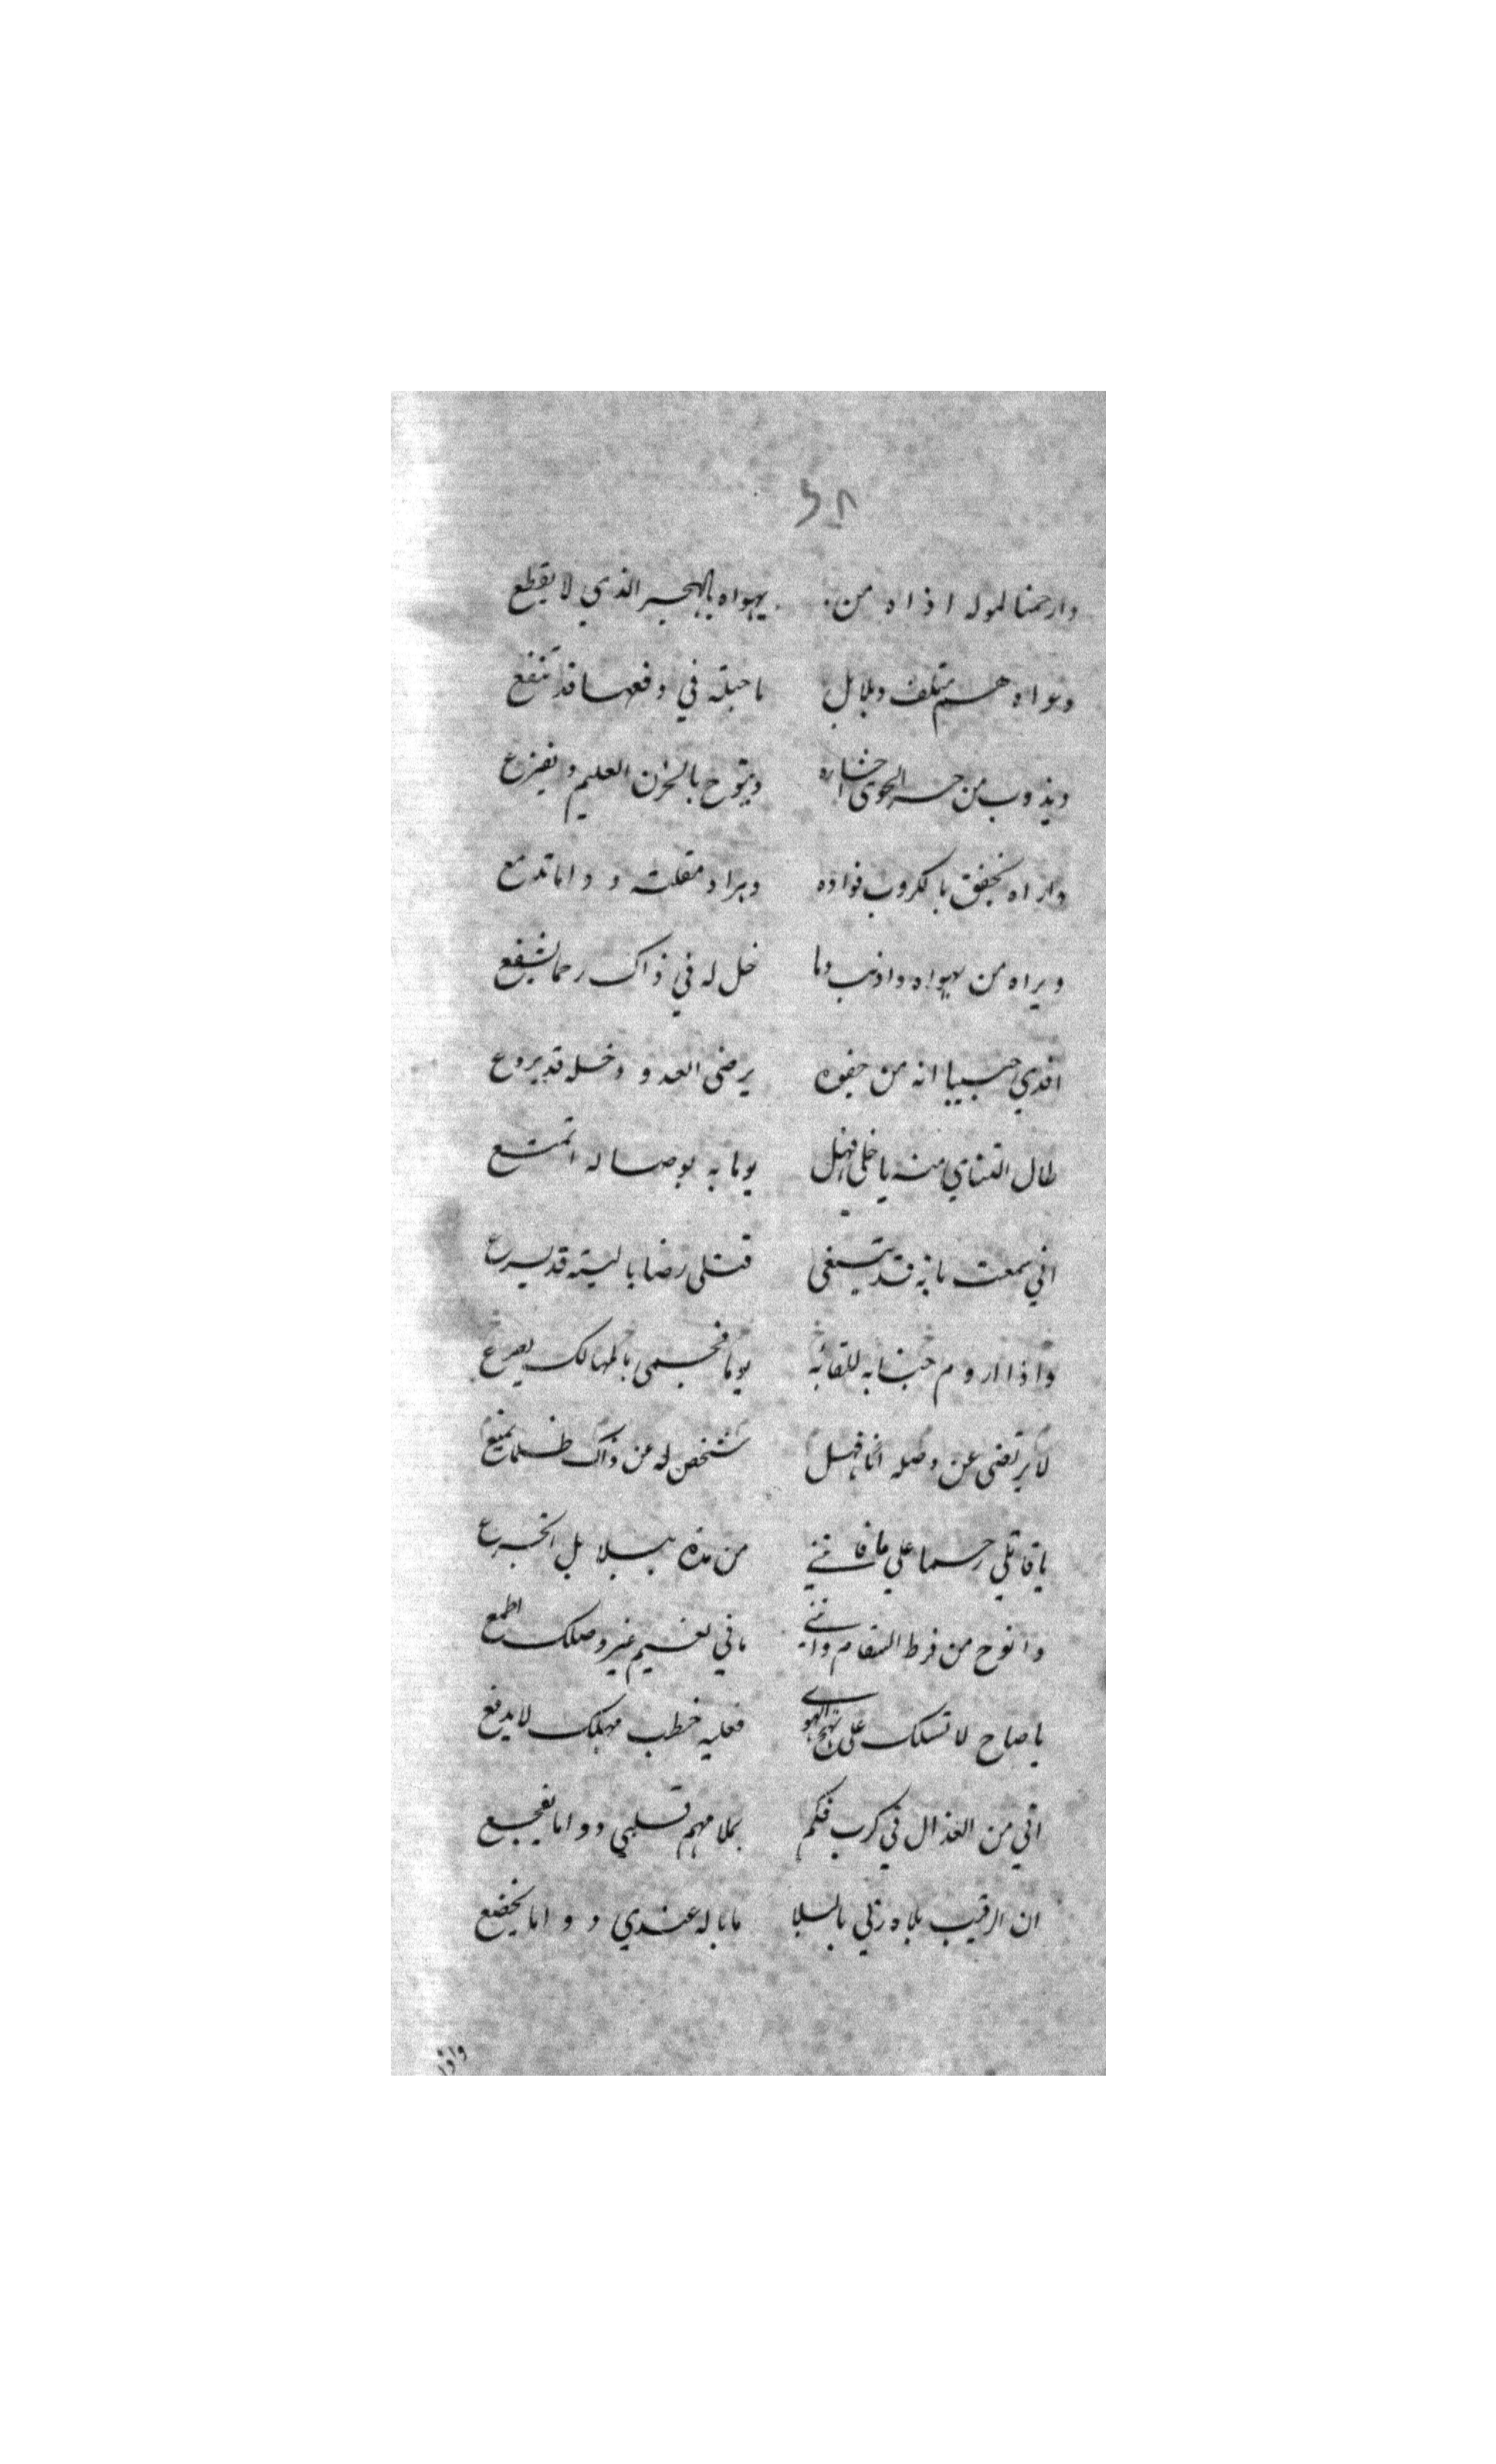 وارحمنا لموله اذاه من يهواه بالهجر الذي لا يقطع
وعواه هم متلف وبلابل ما حيلة في دفعها قد تنفع
ويذوب من حر الجوى احشاءه وينوح بالحزن العليم ويفزع
واراه يخفق بالكروب فواده ويراد مقلته دواما تدمع
ويراه من يهواه واذنب وما خل له في ذاك رحما يشفع
افدي حبيبا انه من جفوه يرضى العدو وخله قد يروع
طال اعتناي منه يا خلي فهل يوما به بوصاله اتمتع
اني سمعت بانه قد يبتغي قتلي رضا يا ليته قد يسرع
واذا اروم جنابه للقائه يوما فجسمي بالمهالك يصرع
لا يرتضي عن وصله انا فهل شخص له عن ذاك ظلما يمنع
يا قاتلي رحما علي ما فاتني من مدة ببلابل اتجرع
وانوح من فرط السقام وانني ما في نعيم غير وصلك اطمع
يا صاح لا تسلك على نهج الهوى فعليه خطب مهلك لا يدفع
اني من العذال في كرب فكم بملامهم قلبي دواما يفجع
ان الرقيب بلاه ربي بالبلا ما باله عندي دواما يخضع
واذا